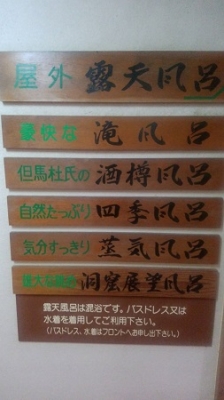 屋外 露天風呂
豪快な 滝風呂
但馬杜氏の 酒樽風呂
自然たっぷり 四季風呂
気分すっきり 蒸気風呂
雄大な眺め 洞窟展望風呂
露天風呂は混浴です。バスドレス又は
水着を着用してご利用下さい。
(バスドレス、水着はフロントへお申し出下さい。)